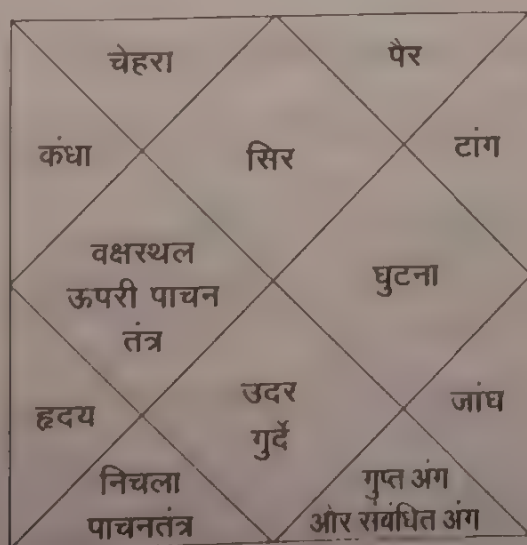 चेहरा
पैर
कंधा
सिर
टांग
वक्षस्थल
ऊपरी पाचन
तंत्र
घुटना
हृदय
उदर
गुर्दे
जांघ
निचला
पाचनतंत्र
गुप्त अंग
और संबंधित अंग